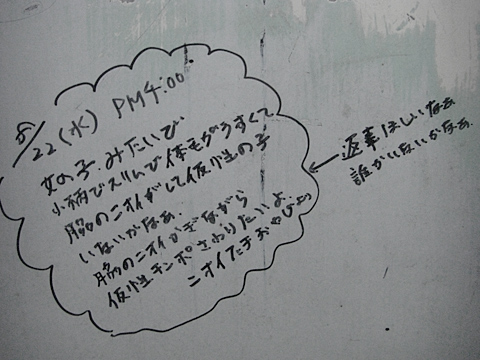 8/22(水) PM4:00
女の子みたいで
小柄でスリムで体モがうすくて
脇のニオイがして仮性の子
いないかなぁ.
脇のニオイかぎながら
仮性チンポさわりたいよ.
ニオイだす
返事ほしいなぁ
誰かいないかなぁ.